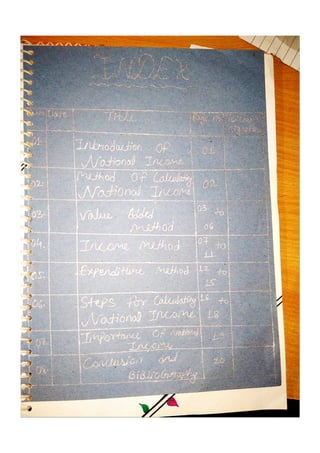 INDEX
Date Title Page No.
01. Introduction Of 01
National Income
02. Method Of Calculating 02
National Income
03. Value Added 03 to
method 06
04. Income method 07 to
11
05. Expenditure method 12 to
15
06. Steps for Calculating 16 to
National Income 18
07. Importance Of National 19
Income
08. Conclusion and 20
Bibliography